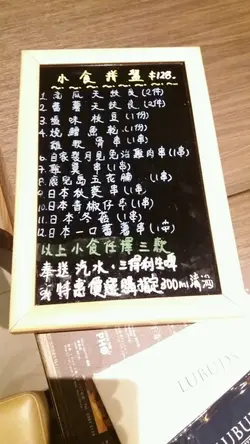 小食拼盤 $128.
1. 南瓜天婦良(2件)
2. 番薯天婦良(2件)
3. 塩味枝豆(1份)
4. 燒鱈魚乾(1份)
5. 雞軟骨串(1串)
6. 自家製月見免治雞肉串(1串)
7. 提燈串(1串)
8. 鹿児島五花腩(1串)
9. 日本秋葵串(1串)
10. 日本青椒仔串(1串)
11. 日本冬菇(1串)
12. 日本一口番薯串(1串)
以上小食任擇三款
奉送汽水、三得利生啤
特惠價選購指定300ml清酒